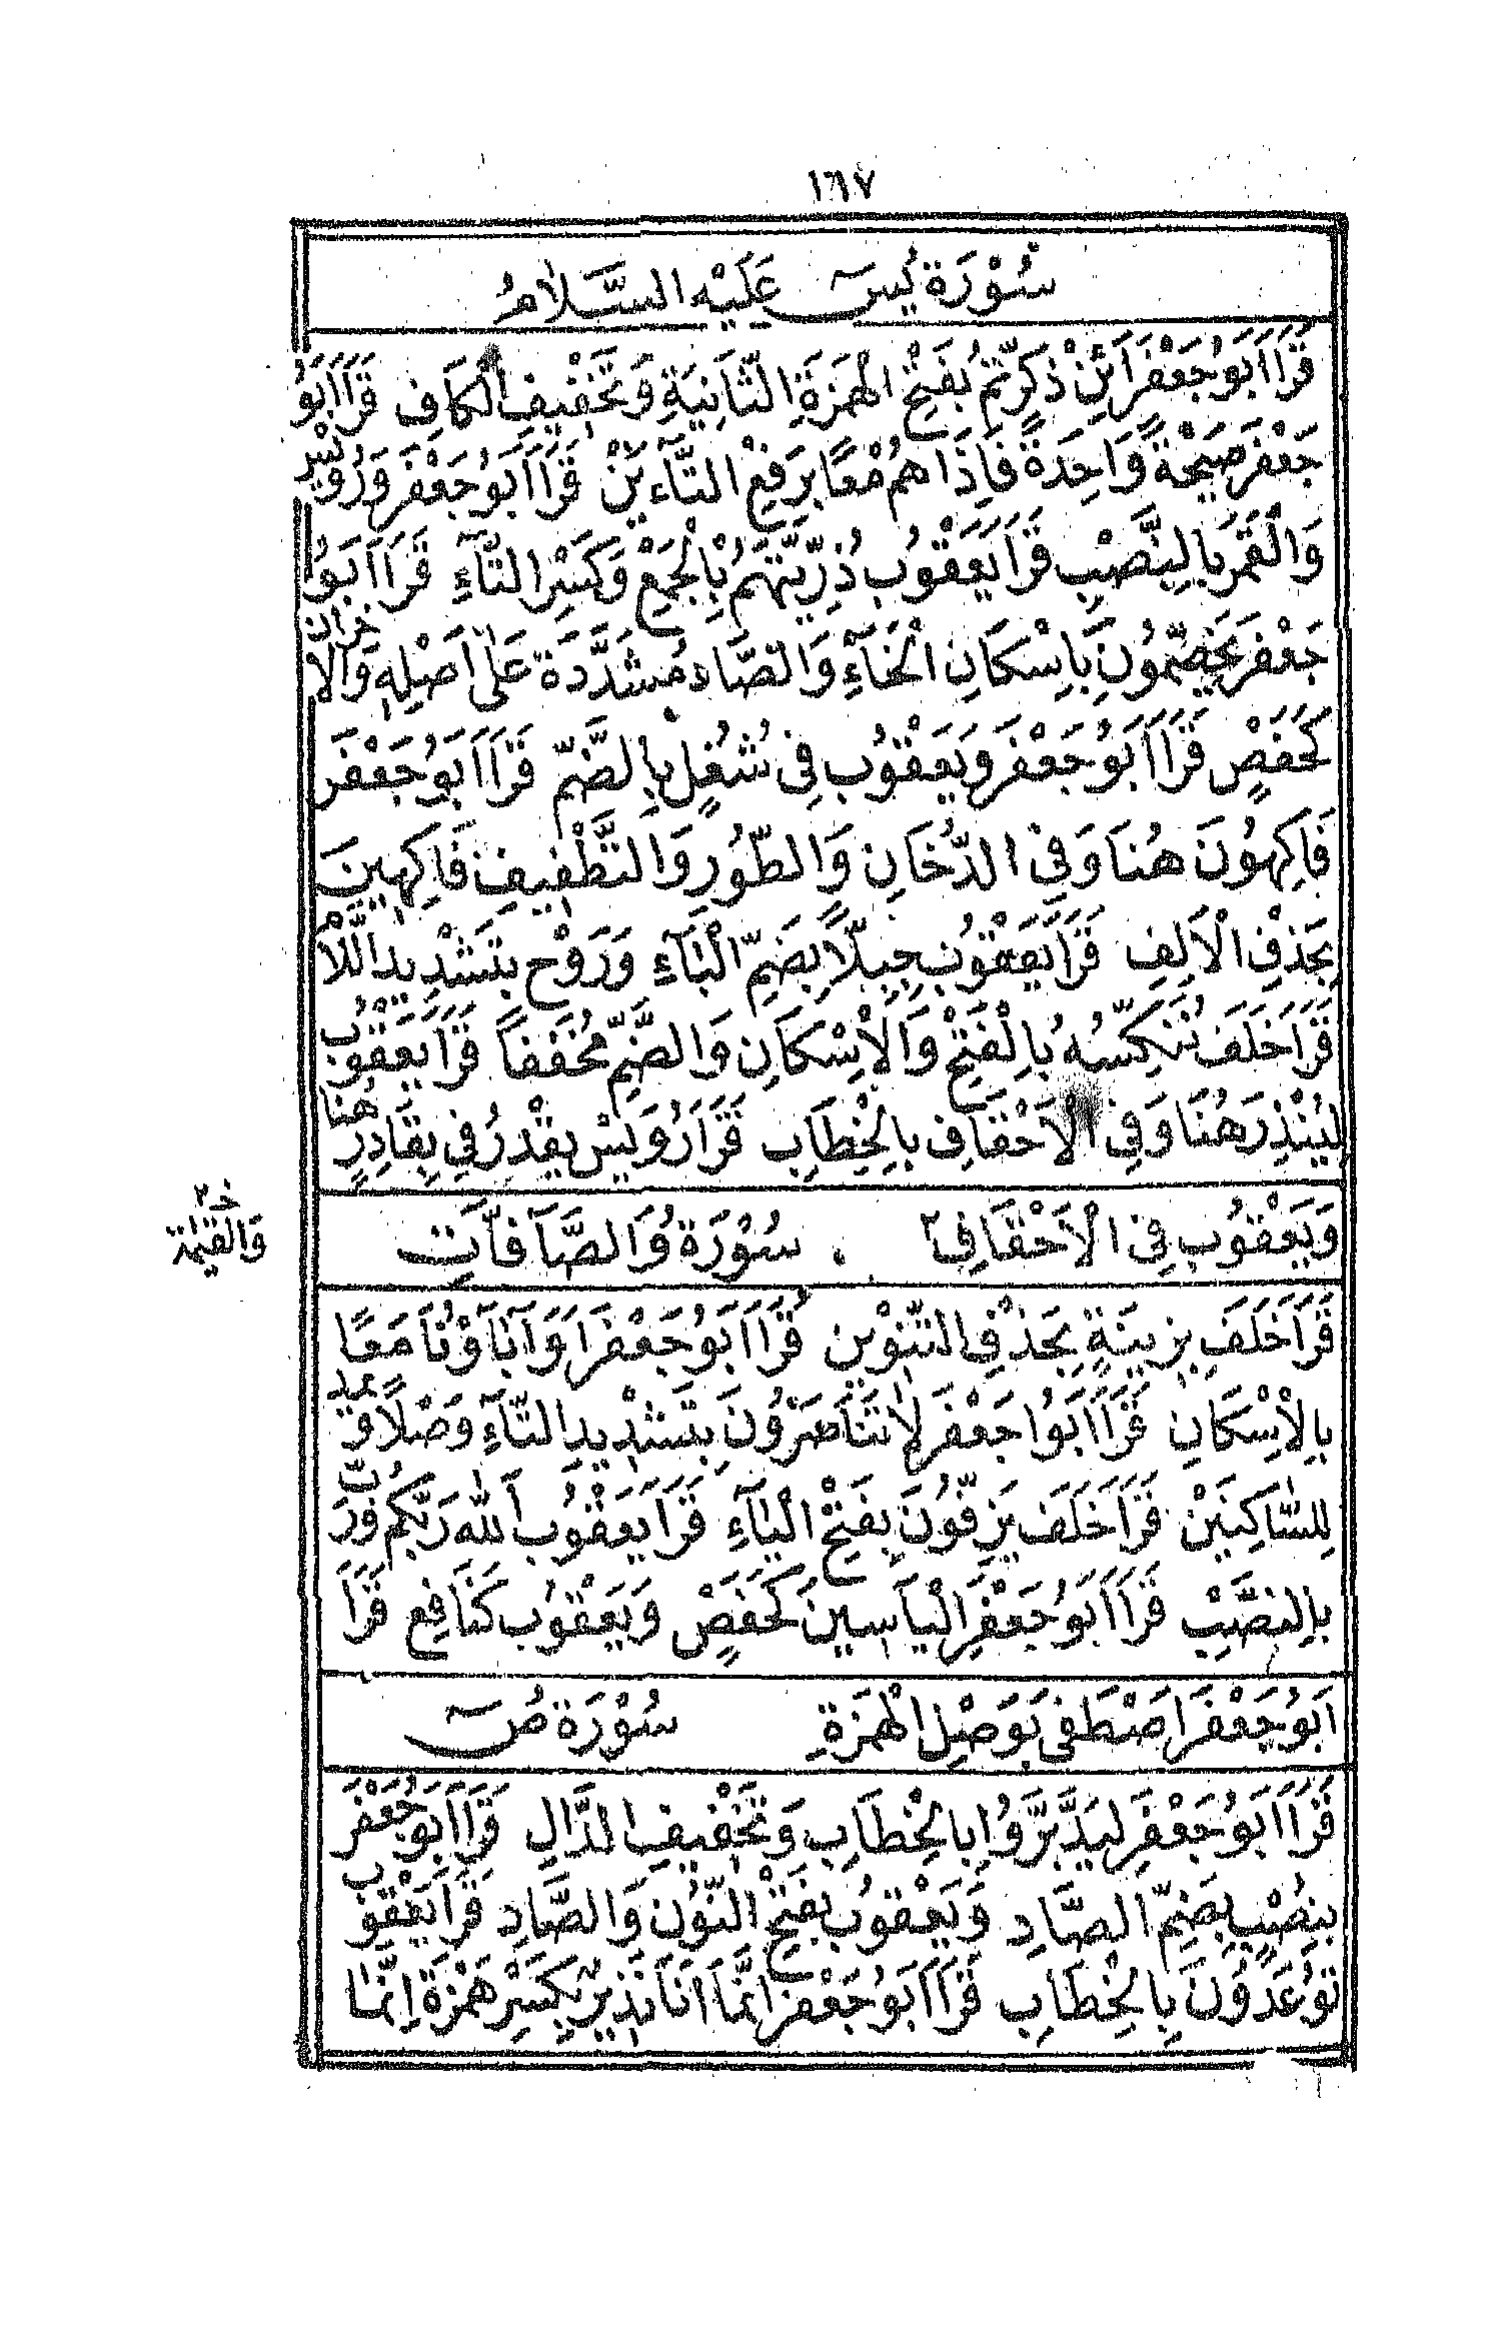 ١٦٧
سُوْرَة يٰسٓ عَلَيْهِ السَّلَامُ
قَرَأَ اَبُو جَعْفَرَ اَئِنْ ذُكِرْتُمْ بِفَتْحِ الْهَمْزَةِ الثَّانِيَةِ وَتَخْفِيفِ الْكَافِ قَرَأَ اَبُو
جَعْفَرَ صَيْحَةٌ وَاحِدَةٌ فَاِذَا هُمْ مَعًا بِرَفْعِ التَّاءَيْنِ قَرَأَ اَبُو جَعْفَرَ وَرُوَيْسٌ
وَالْقَمَرَ بِالنَّصْبِ قَرَأَ يَعْقُوبُ ذُرِّيَّتَهُمْ بِالْجَمْعِ وَكَسْرِ التَّآءِ قَرَأَ اَبُوا
جَعْفَرَ يَخْصِّمُونَ بِاِسْكَانِ الْخَآءِ وَالصَّاد مُشَدَّدَة عَلٰى اَصْلِهِ وَالْاٰخَرَانِ
كَحَفْصٍ قَرَأَ اَبُو جَعْفَرَ وَيَعْقُوُب فِى شُغُلٍ بِالضَّمِّ قَرَأَ اَبُو جَعْفَرَ
فَاكِهُونَ هُنَا وَفِى الدُّخَانِ وَالطُّورِ وَالتَّطْفِيفِ فَاكِهِينَ
بِحَذْفِ الْاَلِفِ قَرَأَ يَعْقُوُب جِبِلًّا بِضَمِّ الْبَآءِ وَرَوْح بِتَشْدِيدِ اللَّامِ
قَرَأَ خَلَف نُنَكِّسْهُ بِالْفَتْحِ وَالْاِسْكَانِ وَالضَّمِّ مُخَفَّفًا قَرَأَ يَعْقُوبُ
لِيُنْذِرَ هُنَا وَفِى الْاَحْقَافِ بِالْخِطَابِ قَرَأَ رُوَيْس يَقْدِرُ فِى بِقَادِرٍ هُنَا
وَيَعْقُوُب فِى الْاَحْقَافِ٢ . سُوْرَةُ وَالصَّآفَّاتِ
خ ٢
وَالقيٰمة
قَرَأَ خَلَفَ بِزِينَةٍ بِحَذْفِ التَّنْوِينِ قَرَأَ اَبُو جَعْفَرَ اَوَ آبَاؤُنَا مَعًا
بِالْاِسْكَانِ قَرَأَ اَبُوا جَعْفَرَ لَا تَنَاصَرُونَ بِتَشْدِيدِ التَّآءِ وَصْلًا وَيمد
لِلسَّاكِنَيْنِ قَرَأَ خَلَف يَزِفُّونَ بِفَتْحِ الْيَآءِ قَرَأَ يَعْقُوُب اَللّٰهَ رَبَّكُمْ وَرَبَّ
بِالنَّصْبِ قَرَأَ اَبُو جَعْفَرَ اِلْيَاسِينَ كَحَفْصٍ وَيَعْقُوُب كَنَافِع قَرَأَ
اَبُو جَعْفَرَ اصْطَفَى بِوَصْلِ الْهَمْزَةِ سُوْرَة صٓ
قَرَأَ اَبُو جَعْفَرَ لِيَدَّبَّرُوا بِالْخِطَابِ وَتَخْفِيفِ الدَّالِ قَرَأَ اَبُو جَعْفَر
بِنُصُبٍ بِضَمِّ الصَّادِ وَيَعْقُوبُ بِفَتْحِ النُّونِ وَالصَّادِ قَرَأَ يَعْقُوب
تُوعَدُونَ بِالْخِطَابِ قَرَأَ اَبُو جَعْفَر اِنَّمَا اَنَا نَذِيرٌ بِكَسْرِ هَمْزَةِ اِنَّمَا